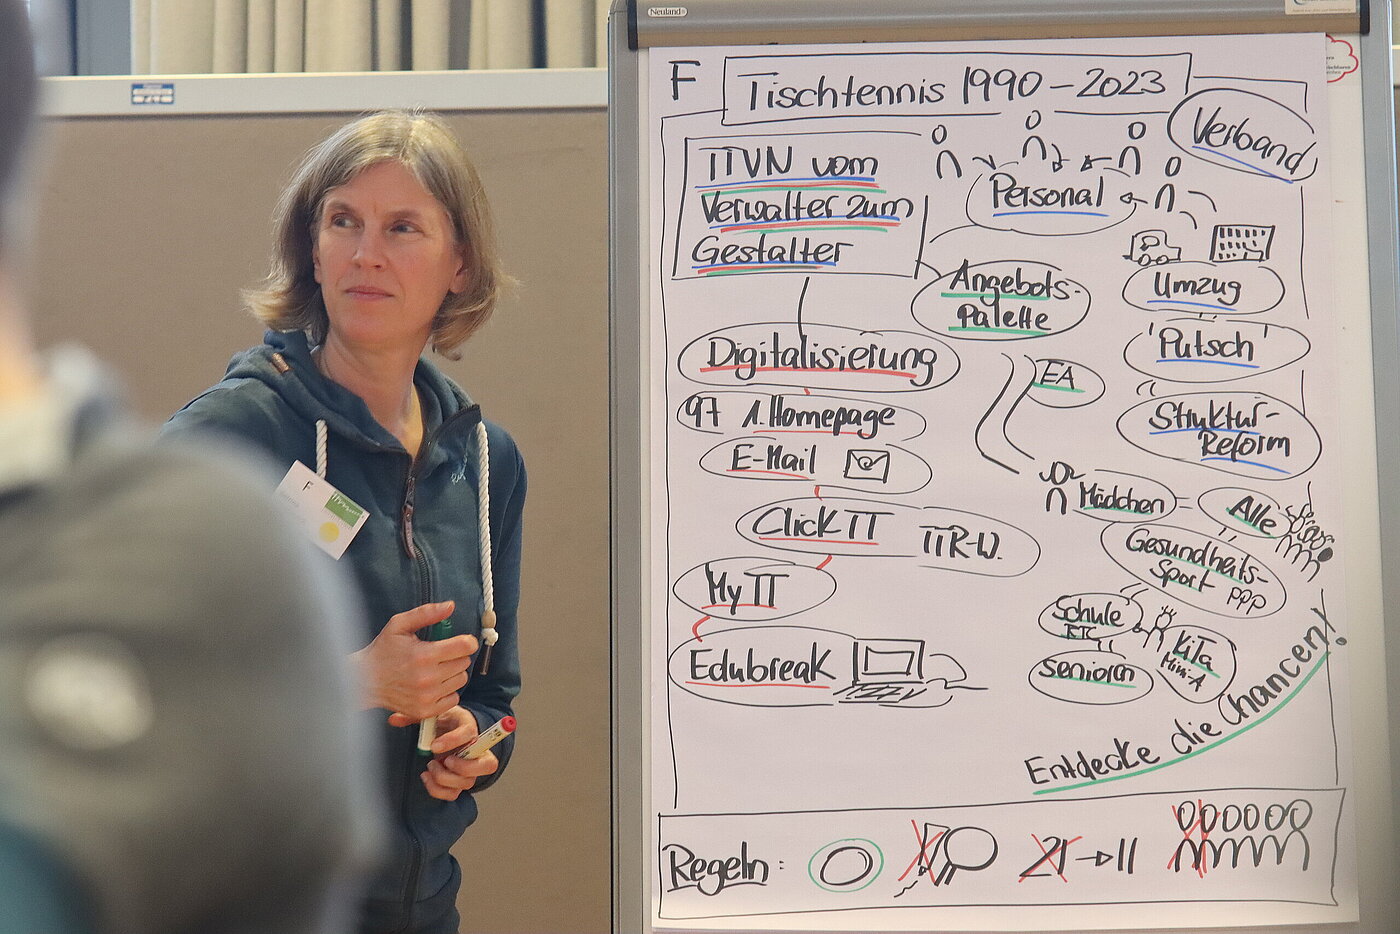 Neuland
F
Tischtennis 1990 – 2023
Verband
TTVN vom
Verwalter zum
Gestalter
Personal
Angebots-
Palette
Umzug
'Putsch'
Struktur-
Reform
EA
Digitalisierung
97 1. Homepage
E-Mail
Click TT TTR-W.
My TT
Edubreak
Mädchen
Alle
Gesundheits-
Sport PPP
Schule
KiTa
Mini-A
Senioren
Entdecke die Chancen!
Regeln:
21 → 11
F